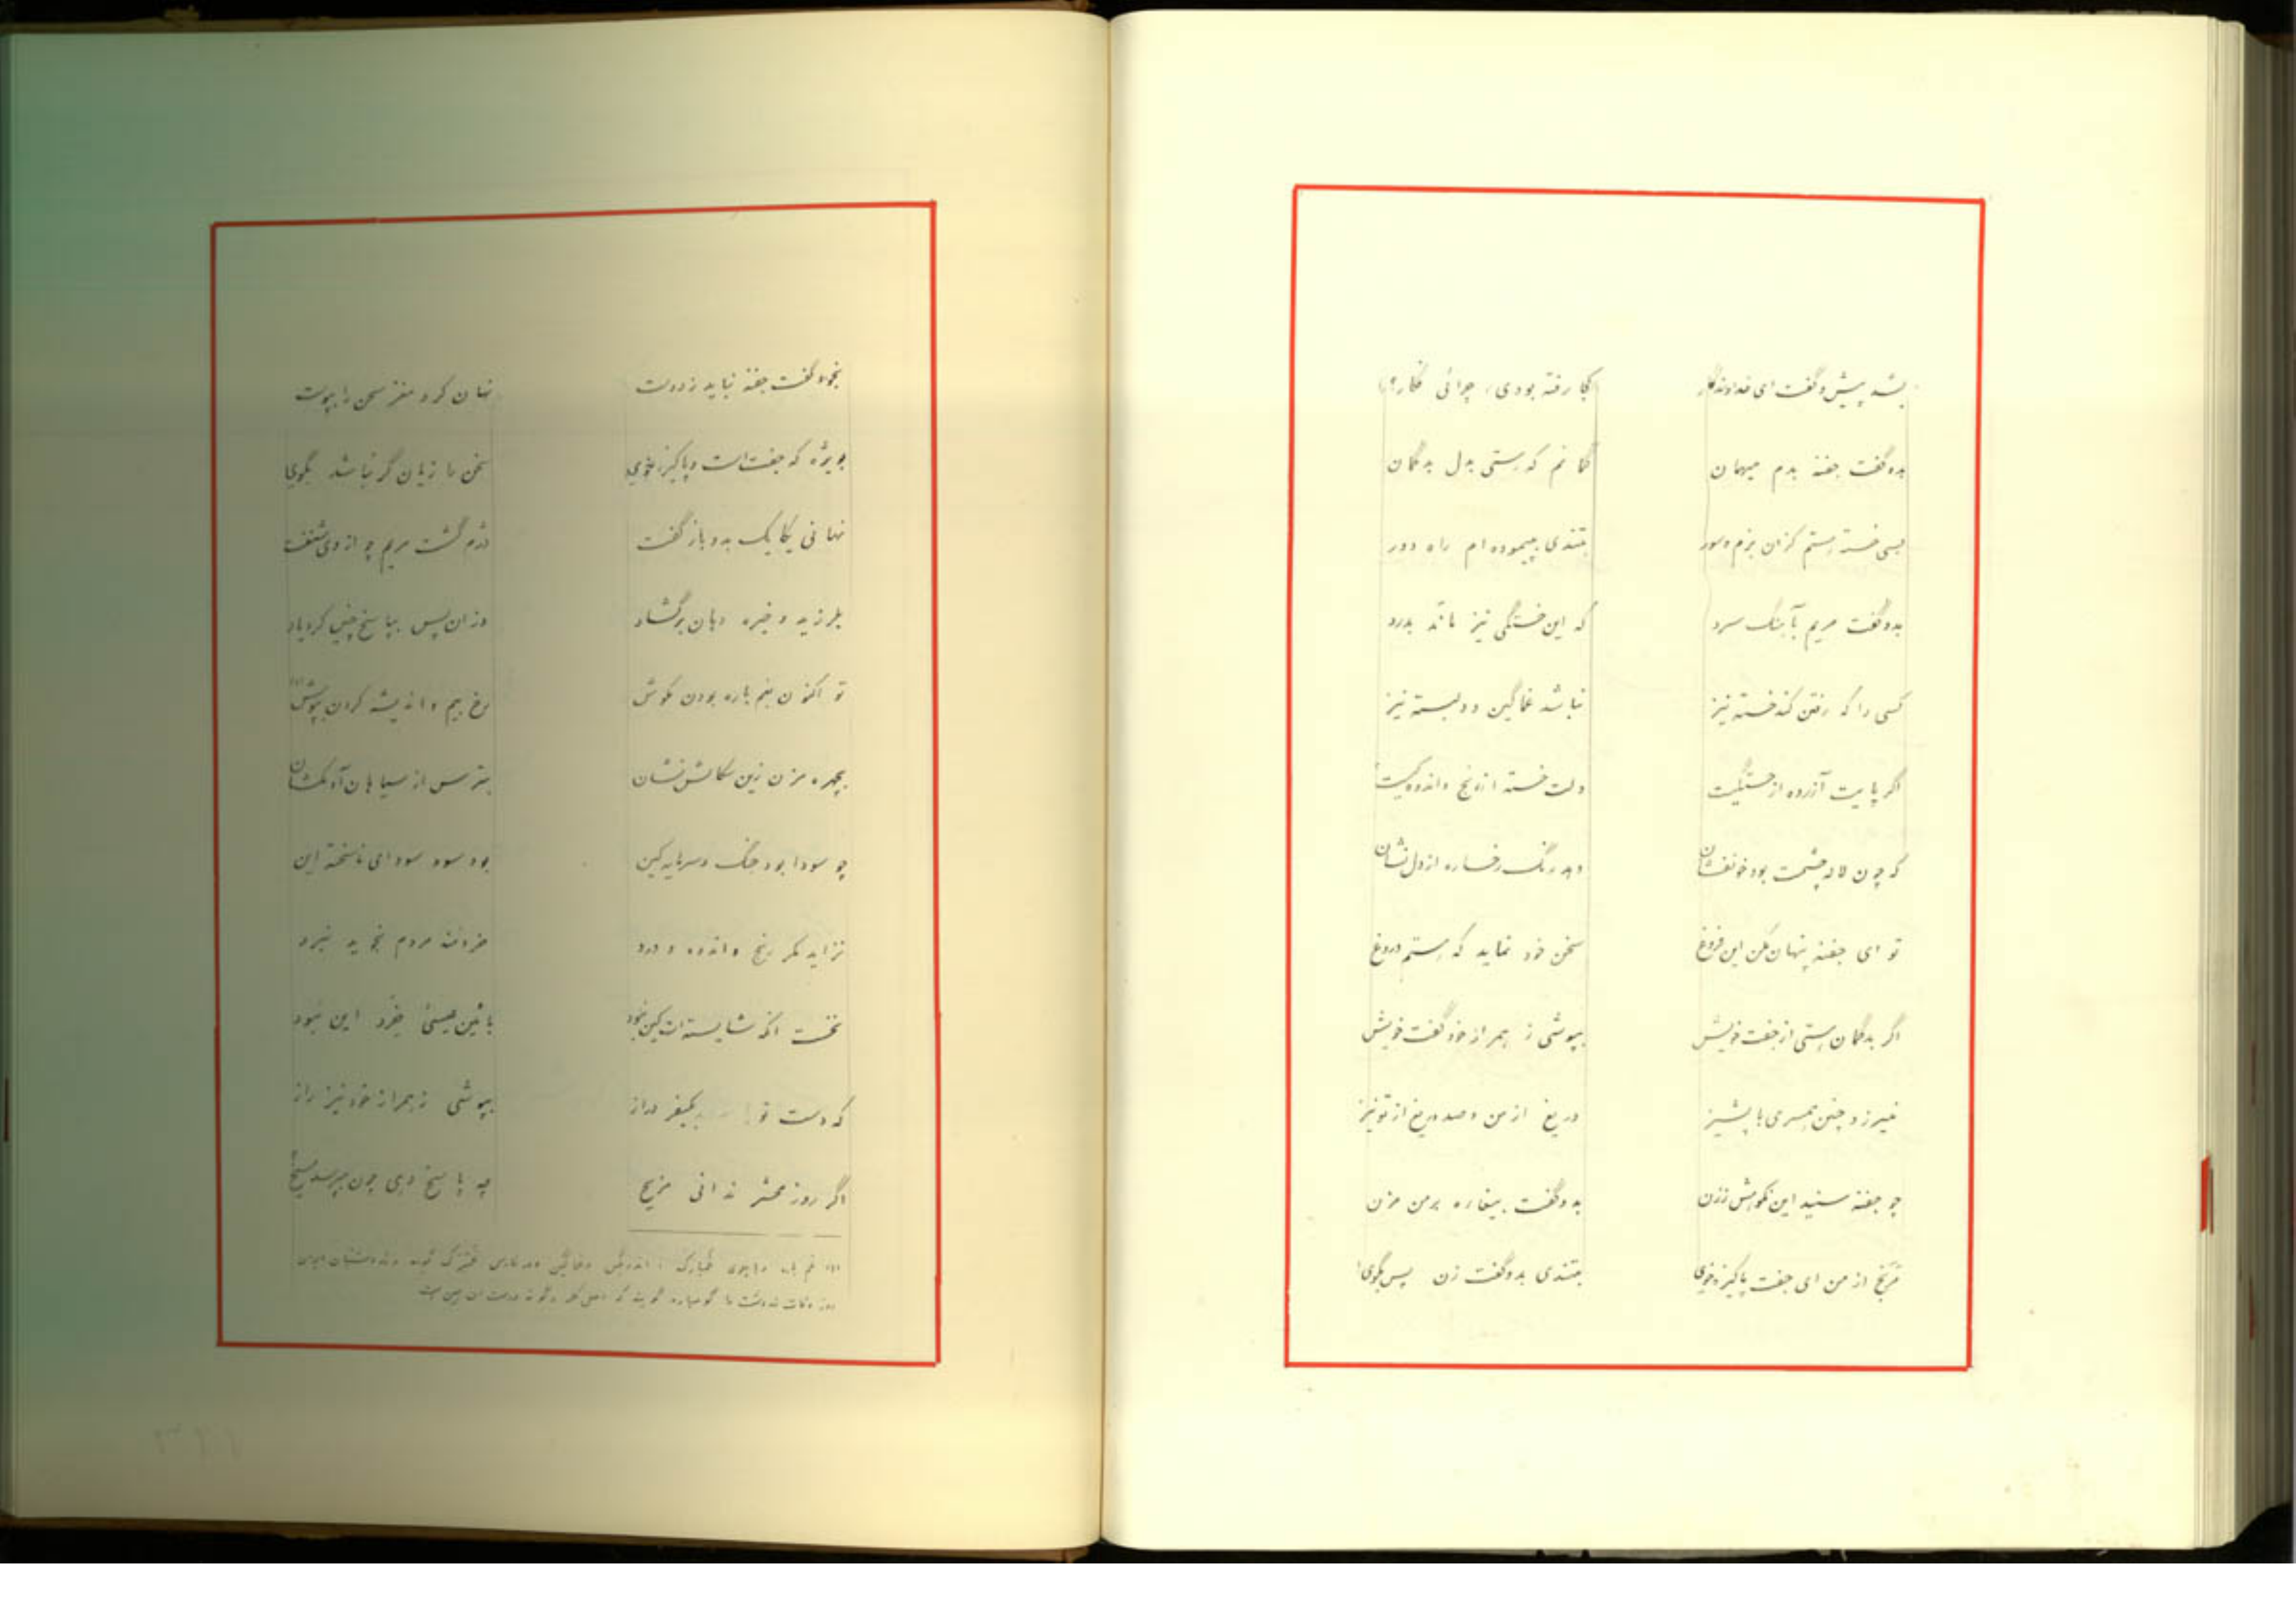 بشد پیش و گفت ای خداوندگار کجا رفته بودی، چرائی فکار؟
بدو گفت جفنه بدم میهمان گمانم که رستی بدل بدگمان
بسی خسته رستم کزان بزم و سور بتندی بپیموده‌ام راه دور
بدو گفت مریم بآهنگ سرد که این خستگی نیز ماند بدرد
کسی را که رفتن کند خسته نیز نباشد غمآگین و دلبسته نیز
اگر پایت آزرده از خستگیست دلت خسته از رنج و اندوه کیست
که چون لاله چشمت بود خونفشان دهد رنگ رخساره از دل نشان
تو ای جفنه پنهان مکن این فروغ سخن خود نماید که رستم دروغ
اگر بدگمان رستی از جفت خویش بپوشی ز همراز خود گفت خویش
نیرزد چنین همسری با پشیز دریغ از من و صد دریغ از تو نیز
چو جفنه شنید این نکوهش ززن بدو گفت بیغاره بر من مزن
مرنج از من ای جفت پاکیزه‌خوی بتندی بدو گفت زن پس بگوی
بخود گفت جفنه نباید ز دوست نهان کرد مغز سخن را بپوست
بویژه که جفت است و پاکیزه خوی سخن را زیان گر نباشد بگوی
نهانی یکایک بدو باز گفت دژم گشت مریم چو از وی شنفت
بلرزید و خیره دهان برگشاد وزان پس بپاسخ چنین کرد یاد
تو اکنون بغم باره بودن مکوش رخ بیم و اندیشه کردن بپوش (۱)
بچهره مزن زین سگالش نشان بترس از سیاهان آدمکشان
چو سودا بود جنگ و سرمایه کین بود سود سودای ناسخته این
نزاید مگر رنج و اندوه و درد خردمند مردم نجوید نبرد
نخست آنکه شایسته‌ات کین نبود بآئین عیسی خرد این نبود
که دست تو بکیفر دراز بپوشی ز همراز خود نیز راز
اگر روز محشر ندانی مزیح چه پاسخ دهی چون بپرسد مسیح؟
(۱) غم باره